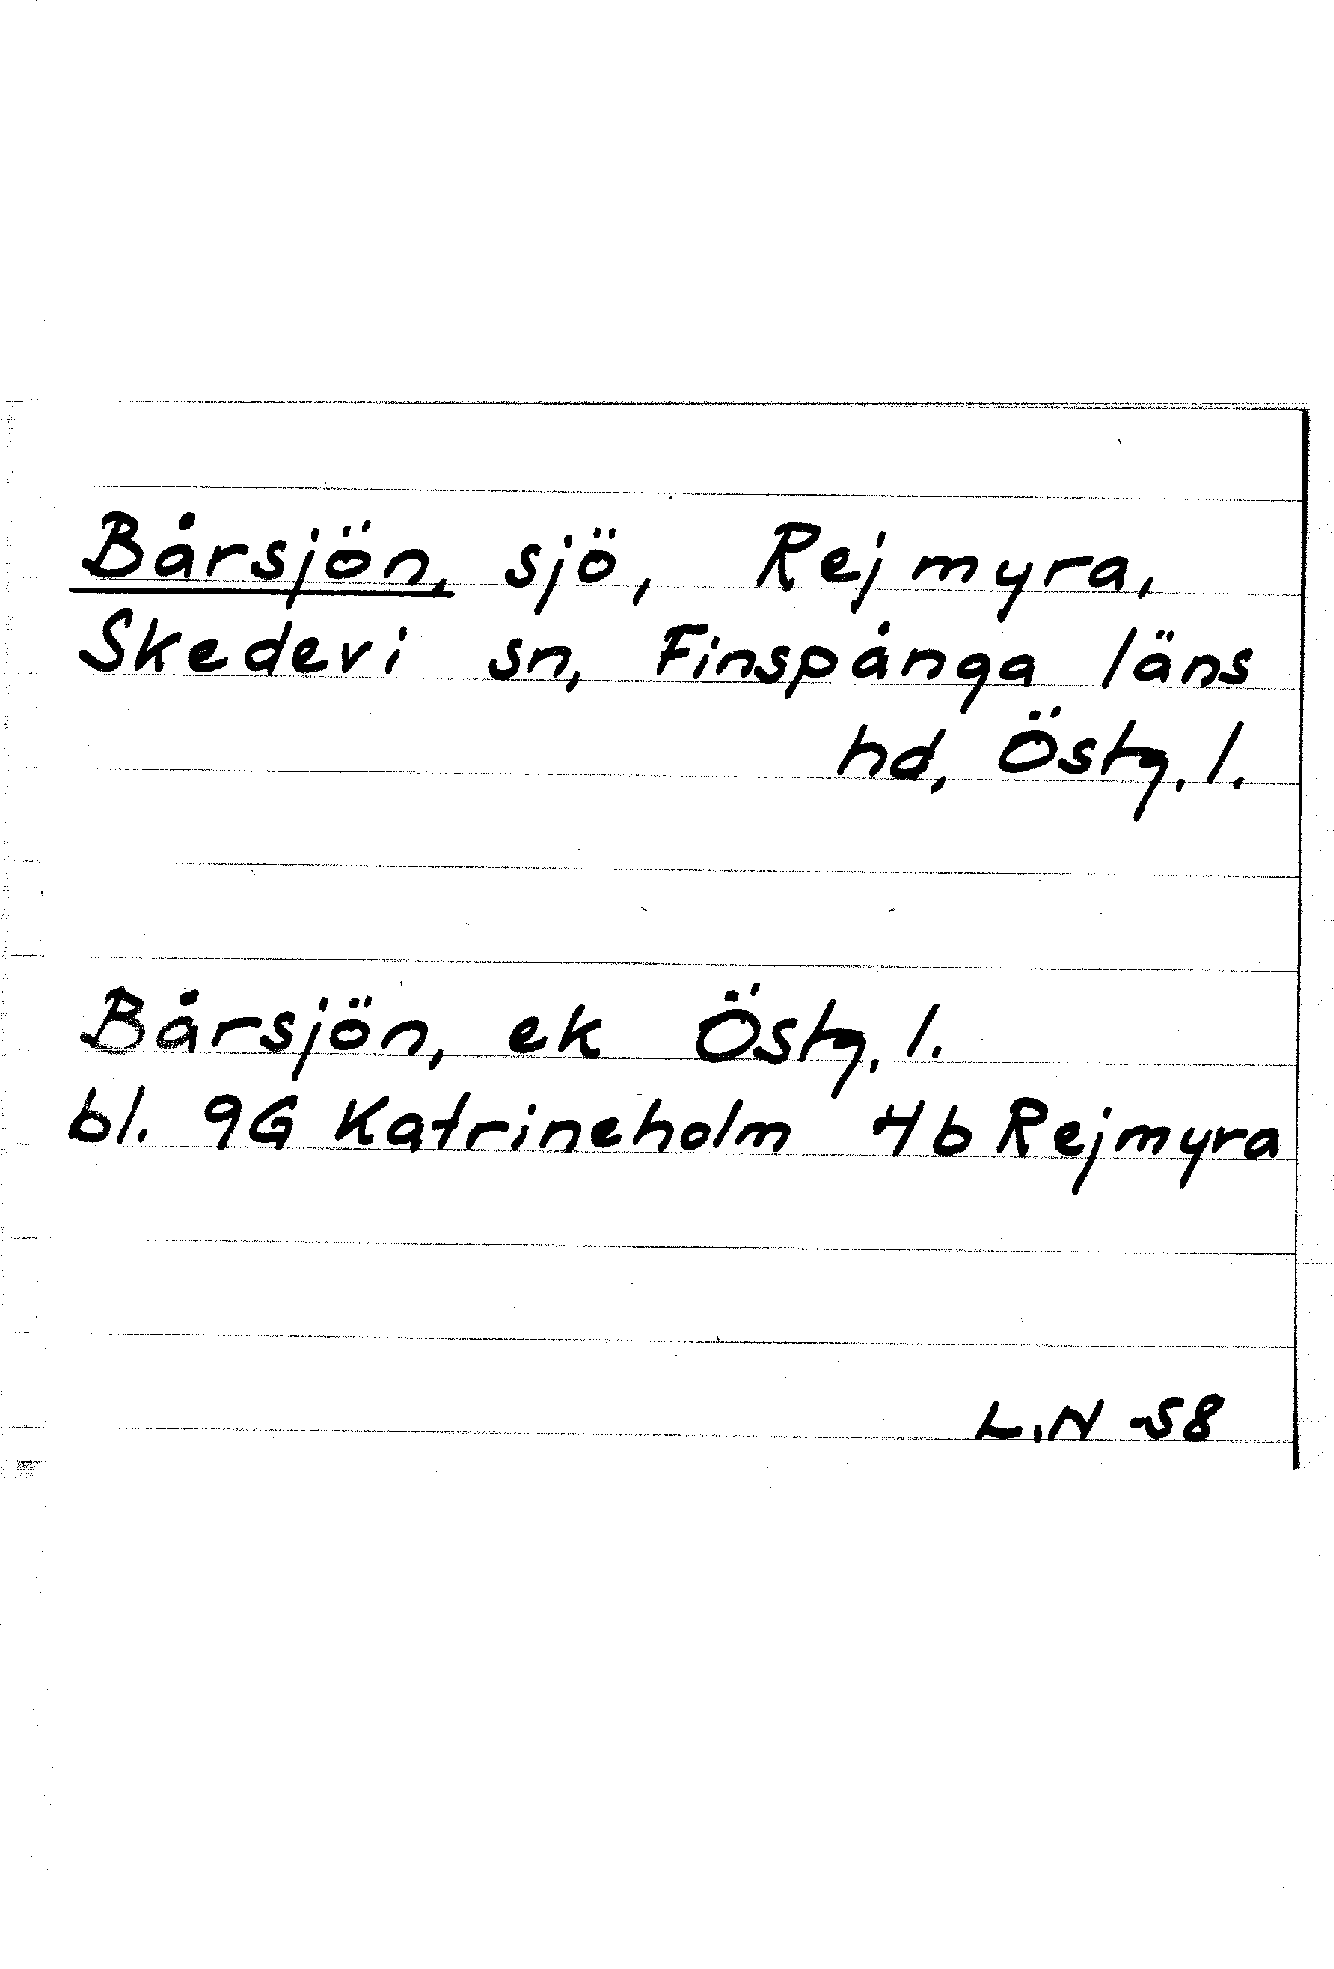 Bårsjön, sjö, Rejmyra,
Skedevi sn, Finspånga läns
hd, Östg. l.
Bårsjön, ek Östg. l.
bl. 9G Katrineholm 4b Rejmyra
L.N -58